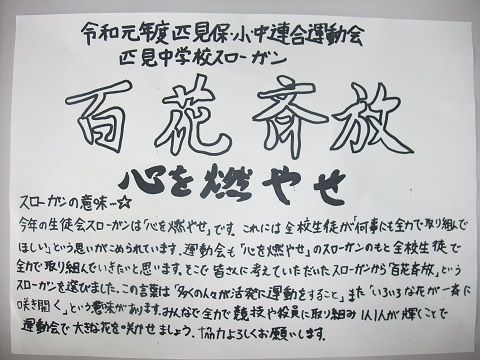 令和元年度匹見保・小中連合運動会
匹見中学校スローガン
百花斉放
心を燃やせ
スローガンの意味…☆
今年の生徒会スローガンは「心を燃やせ」です。これには全校生徒が「何事にも全力で取り組んで
ほしい」という思いがこめられています。運動会も「心を燃やせ」のスローガンのもと全校生徒で
全力で取り組んでいきたいと思います。そこで皆さんに考えていただいたスローガンから「百花斉放」という
スローガンを選びました。この言葉は「多くの人々が活発に運動をすること」また「いろいろな花が一斉に
咲き開く」という意味があります。みんなで全力で競技や役員に取り組み1人1人が輝くことで
運動会で大きな花を咲かせましょう。協力よろしくお願いします。